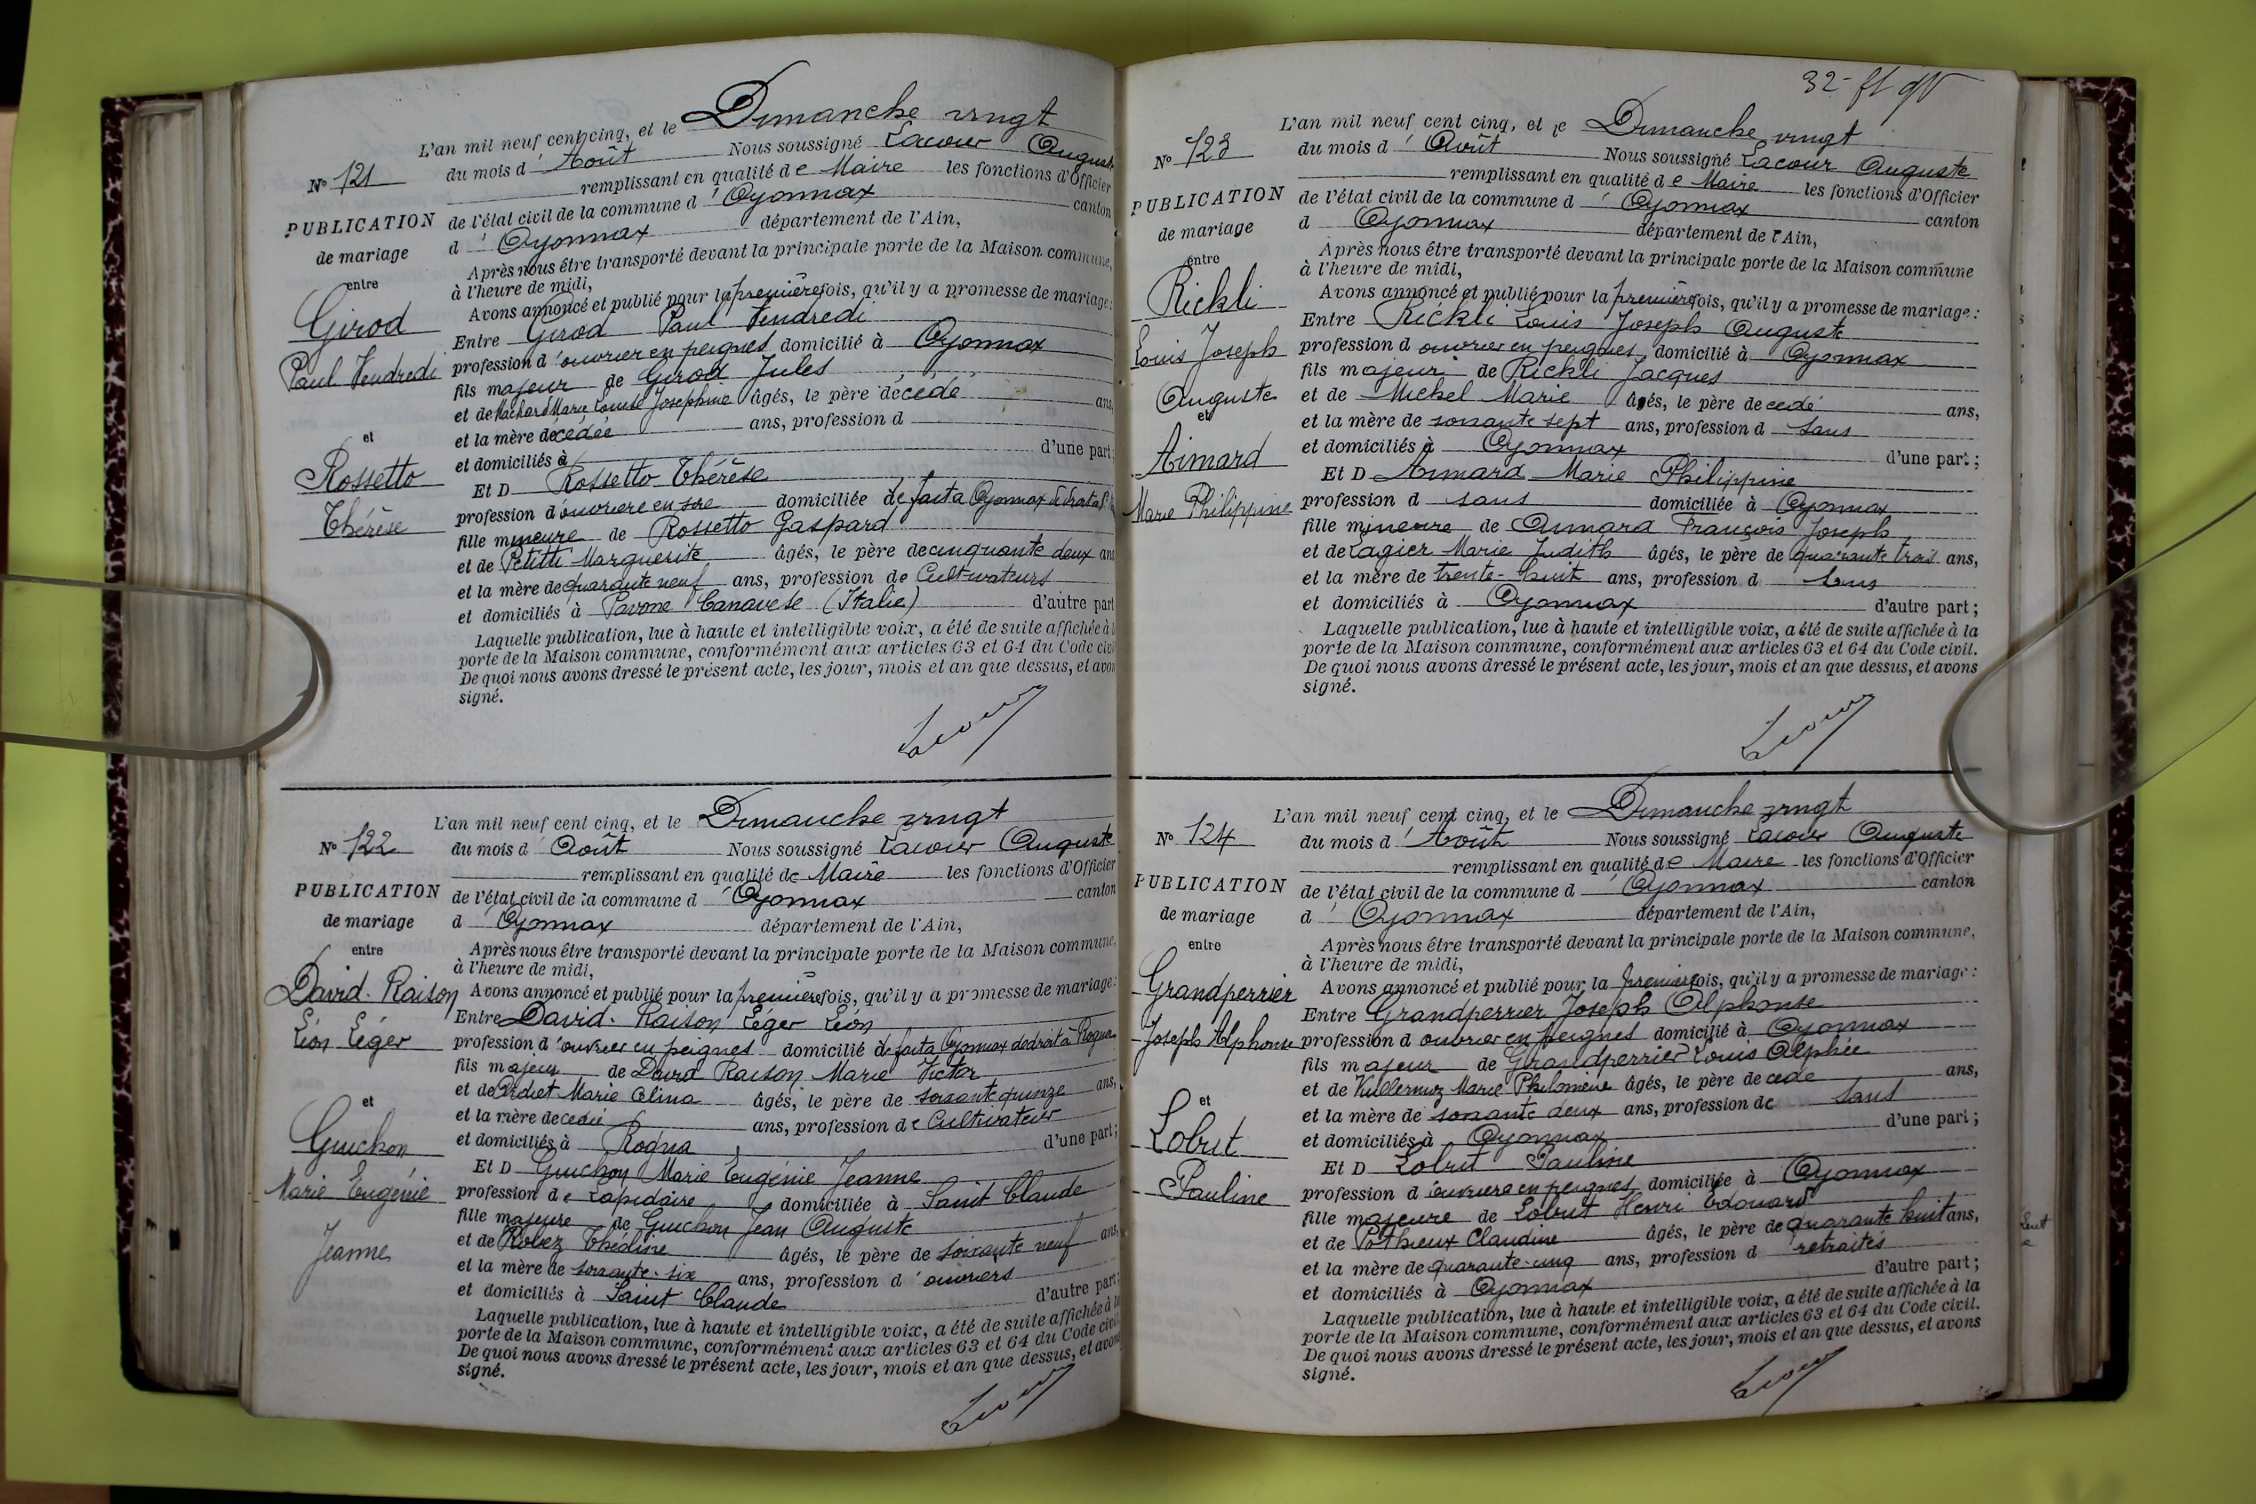 L'an mil neuf cent cinq, et le Dimanche vingt
N° 121
du mois d' Août Nous soussigné Lacour Auguste
remplissant en qualité de Maire les fonctions d'Officier
PUBLICATION
de l'état civil de la commune d' Oyonnax canton
de mariage
d' Oyonnax département de l'Ain,
Après nous être transporté devant la principale porte de la Maison commune,
à l'heure de midi,
entre
Avons annoncé et publié pour la première fois, qu'il y a promesse de mariage:
Girod
Entre Girod Paul Vendredi
Paul Vendredi
profession d'ouvrier en peignes domicilié à Oyonnax
fils majeur de Girod Jules
et de Marie Louise Joséphine âgés, le père décédé ans,
et la mère décédée ans, profession d
et
et domiciliés à d'une part;
Rossetto
Et D Rossetto Thérèse
Thérèse
profession d'ouvrière en soie domiciliée de fait à Oyonnax de droit à
fille mineure de Rossetto Gaspard
et de Petitti Marguerite âgés, le père de cinquante deux ans
et la mère de quarante neuf ans, profession de Cultivateurs
et domiciliés à Pavone Canavese (Italie) d'autre part
Laquelle publication, lue à haute et intelligible voix, a été de suite affichée à
porte de la Maison commune, conformément aux articles 63 et 64 du Code civ
De quoi nous avons dressé le présent acte, les jour, mois et an que dessus, et avon
signé.
Lacour
L'an mil neuf cent cinq, et le Dimanche vingt
N° 122
du mois d' Août Nous soussigné Lacour Auguste
remplissant en qualité de Maire les fonctions d'Officier
PUBLICATION
de l'état civil de la commune d' Oyonnax canton
de mariage
d' Oyonnax département de l'Ain,
entre
Après nous être transporté devant la principale porte de la Maison commune,
à l'heure de midi,
David-Raison
Avons annoncé et publié pour la première fois, qu'il y a promesse de mariage:
Entre David-Raison Léger Léon
Léon Léger
profession d'ouvrier en peignes domicilié de fait à Oyonnax de droit à Rogna
fils majeur de David Raison Marie Victor
et de Marie Alina âgés, le père de soixante quinze ans,
et
et la mère décédée ans, profession de Cultivateur
Guichon
et domiciliés à Rogna d'une part;
Et D Guichon Marie Eugénie Jeanne
Marie Eugénie
profession de Lapidaire domiciliée à Saint Claude
Jeanne
fille majeure de Guichon Jean Auguste
et de Robez Théoline âgés, le père de soixante neuf ans,
et la mère de soixante-six ans, profession d'ouvriers
et domiciliés à Saint Claude d'autre part;
Laquelle publication, lue à haute et intelligible voix, a été de suite affichée à la
porte de la Maison commune, conformément aux articles 63 et 64 du Code civil
De quoi nous avons dressé le présent acte, les jour, mois et an que dessus, et avons
signé.
Lacour
32
L'an mil neuf cent cinq, et le Dimanche vingt
N° 123
du mois d' Août Nous soussigné Lacour Auguste
remplissant en qualité de Maire les fonctions d'Officier
PUBLICATION
de l'état civil de la commune d' Oyonnax canton
de mariage
d Oyonnax département de l'Ain,
entre
Après nous être transporté devant la principale porte de la Maison commune
à l'heure de midi,
Rickli
Avons annoncé et publié pour la première fois, qu'il y a promesse de mariage:
Entre Rickli Louis Joseph Auguste
Louis Joseph
profession d ouvrier en peignes domicilié à Oyonnax
fils majeur de Rickli Jacques
Auguste
et de Michel Marie âgés, le père décédé ans,
et
et la mère de soixante sept ans, profession d sans
Aimard
et domiciliés à Oyonnax d'une part;
Et D Aimard Marie Philippine
Marie Philippine
profession d sans domiciliée à Oyonnax
fille mineure de Aimard François Joseph
et de Lagier Marie Judith âgés, le père de quarante trois ans,
et la mère de trente-huit ans, profession d sans
et domiciliés à Oyonnax d'autre part;
Laquelle publication, lue à haute et intelligible voix, a été de suite affichée à la
porte de la Maison commune, conformément aux articles 63 et 64 du Code civil.
De quoi nous avons dressé le présent acte, les jour, mois et an que dessus, et avons
signé.
Lacour
L'an mil neuf cent cinq, et le Dimanche vingt
N° 124
du mois d' Août Nous soussigné Lacour Auguste
remplissant en qualité de Maire les fonctions d'Officier
PUBLICATION
de l'état civil de la commune d' Oyonnax canton
de mariage
d' Oyonnax département de l'Ain,
entre
Après nous être transporté devant la principale porte de la Maison commune,
à l'heure de midi,
Grandperrier
Avons annoncé et publié pour la première fois, qu'il y a promesse de mariage:
Entre Grandperrier Joseph Alphonse
Joseph Alphonse
profession d ouvrier en peignes domicilié à Oyonnax
fils majeur de Grandperrier Louis Alphée
et de Vuillermoz Marie Philomène âgés, le père décédé ans,
et
et la mère de soixante deux ans, profession de sans
Lobut
et domiciliés à Oyonnax d'une part;
Et D Lobut Pauline
Pauline
profession d'ouvrière en peignes domiciliée à Oyonnax
fille majeure de Lobut Henri Edouard
et de Pothieux Claudine âgés, le père de quarante huit ans,
et la mère de quarante-cinq ans, profession d retraités
et domiciliés à Oyonnax d'autre part;
Laquelle publication, lue à haute et intelligible voix, a été de suite affichée à la
porte de la Maison commune, conformément aux articles 63 et 64 du Code civil.
De quoi nous avons dressé le présent acte, les jour, mois et an que dessus, et avons
signé.
Lacour